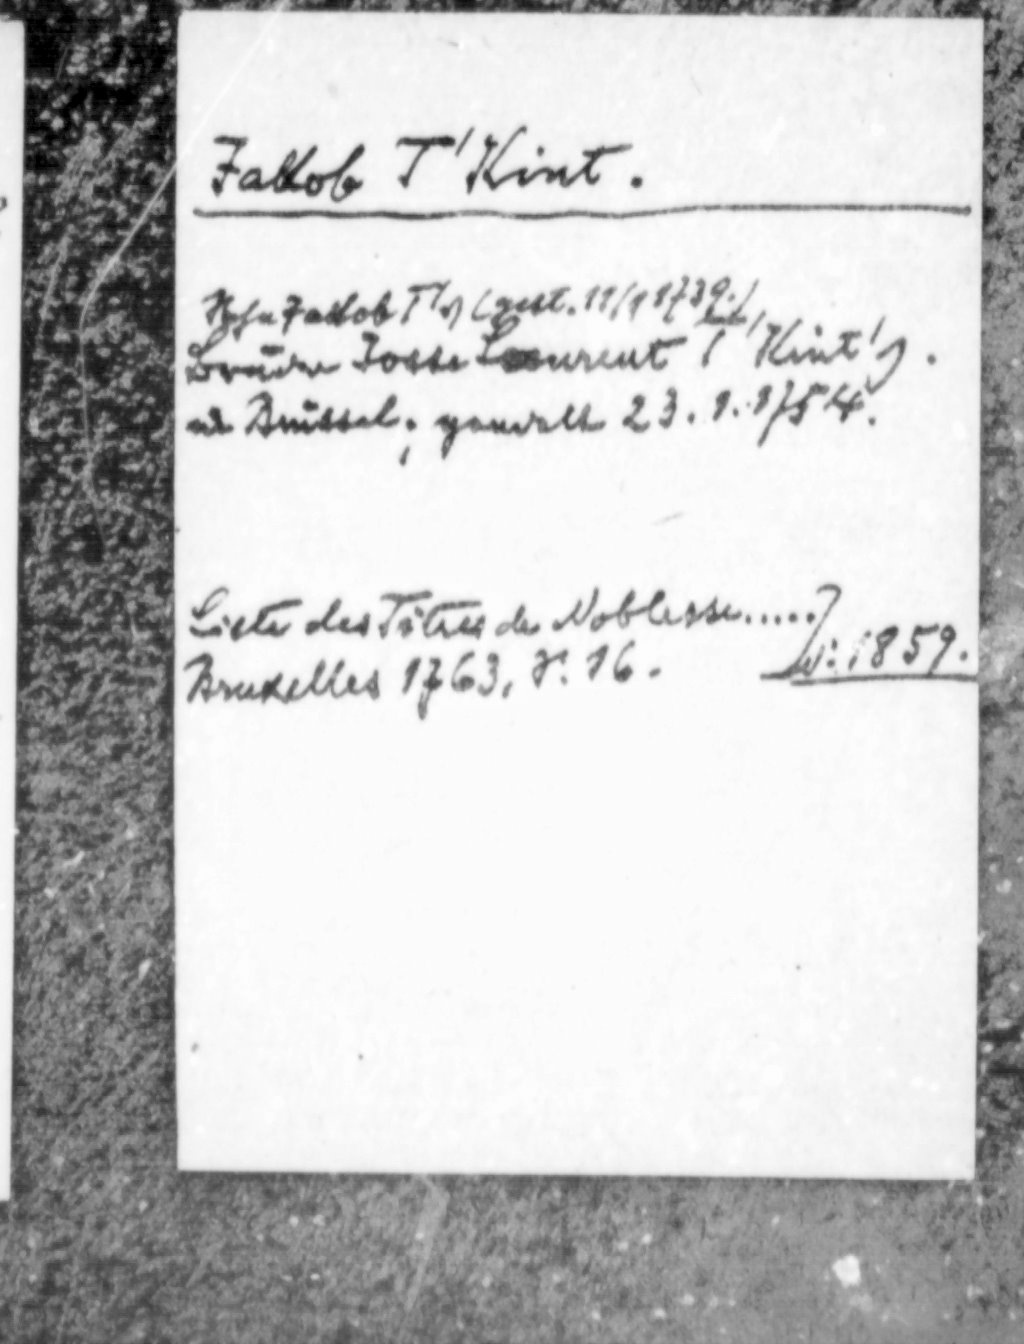 Jakob T'Kint.
Jakob T's (gest. 11/1 1739.),
Josse Laurent T'Kint's.
Brüssel; geadelt 23.1.1754.
Liste des Titres de Noblesse.....
Bruxelles 1763, S. 16.
1859.